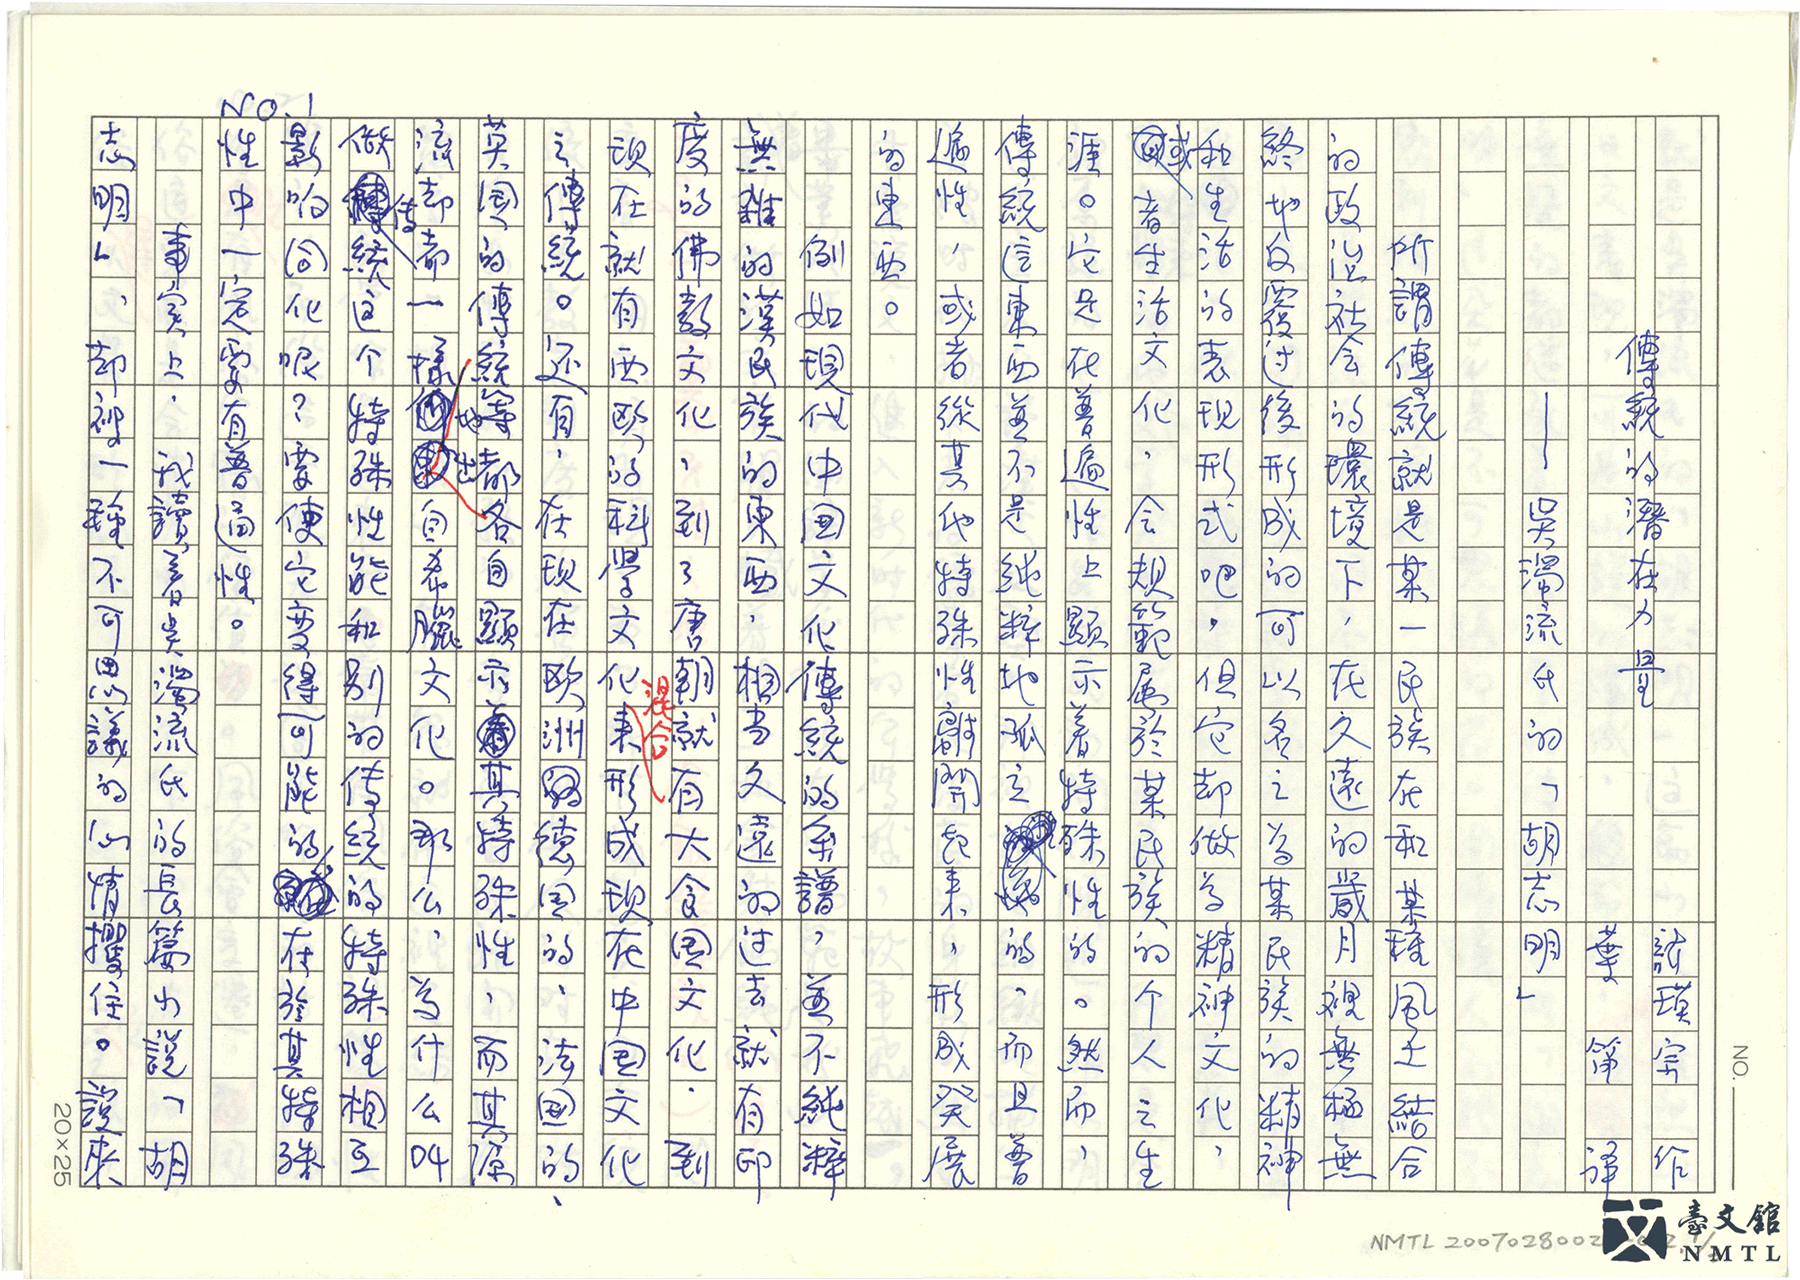 NO.1
傳統的潛在力量
試璞宗作
葉笛譯
——吳濁流氏的「胡志明」
所謂傳統就是某一民族在和某種風土結合
的政治社会的環境下,在久遠的歲月裡無極無
終地反覆过後形成的可以名之為某民族的精神
和生活的表现形式吧。但它却做為精神文化,
或者生活文化,会規範属於某民族的个人之生
涯。它是在普遍性上顯示着特殊性的。然而,
傳統這東西並不是純粹地孤立的,而且普
遍性,或者從其他特殊性離開起来,形成発展
的東西。
例如現代中国文化傳統的系譜,並不純粹
無雜的漢民族的東西,相当久遠的过去就有印
度的佛教文化,到了唐朝就有大食国文化.到
现在就有西欧的科学文化混合来形成现在中国文化
之傳統。还有,在现在欧洲德国的,法国的、
英国的傳統等都各自顯示其特殊性,而其源
流却都一樣地出自希臘文化。那么,為什么叫
做傳統这个特殊性能和别的传統的特殊性相互
影响同化呢?要使它变得可能的,在於其特殊
性中一定要有普遍性。
事实上.我讀着吳濁流氏的長篇小説「胡
志明」,却被一種不可思議的心情攫住。説来
20×25
NO.
NMTL 2007028002
臺文館
NMTL